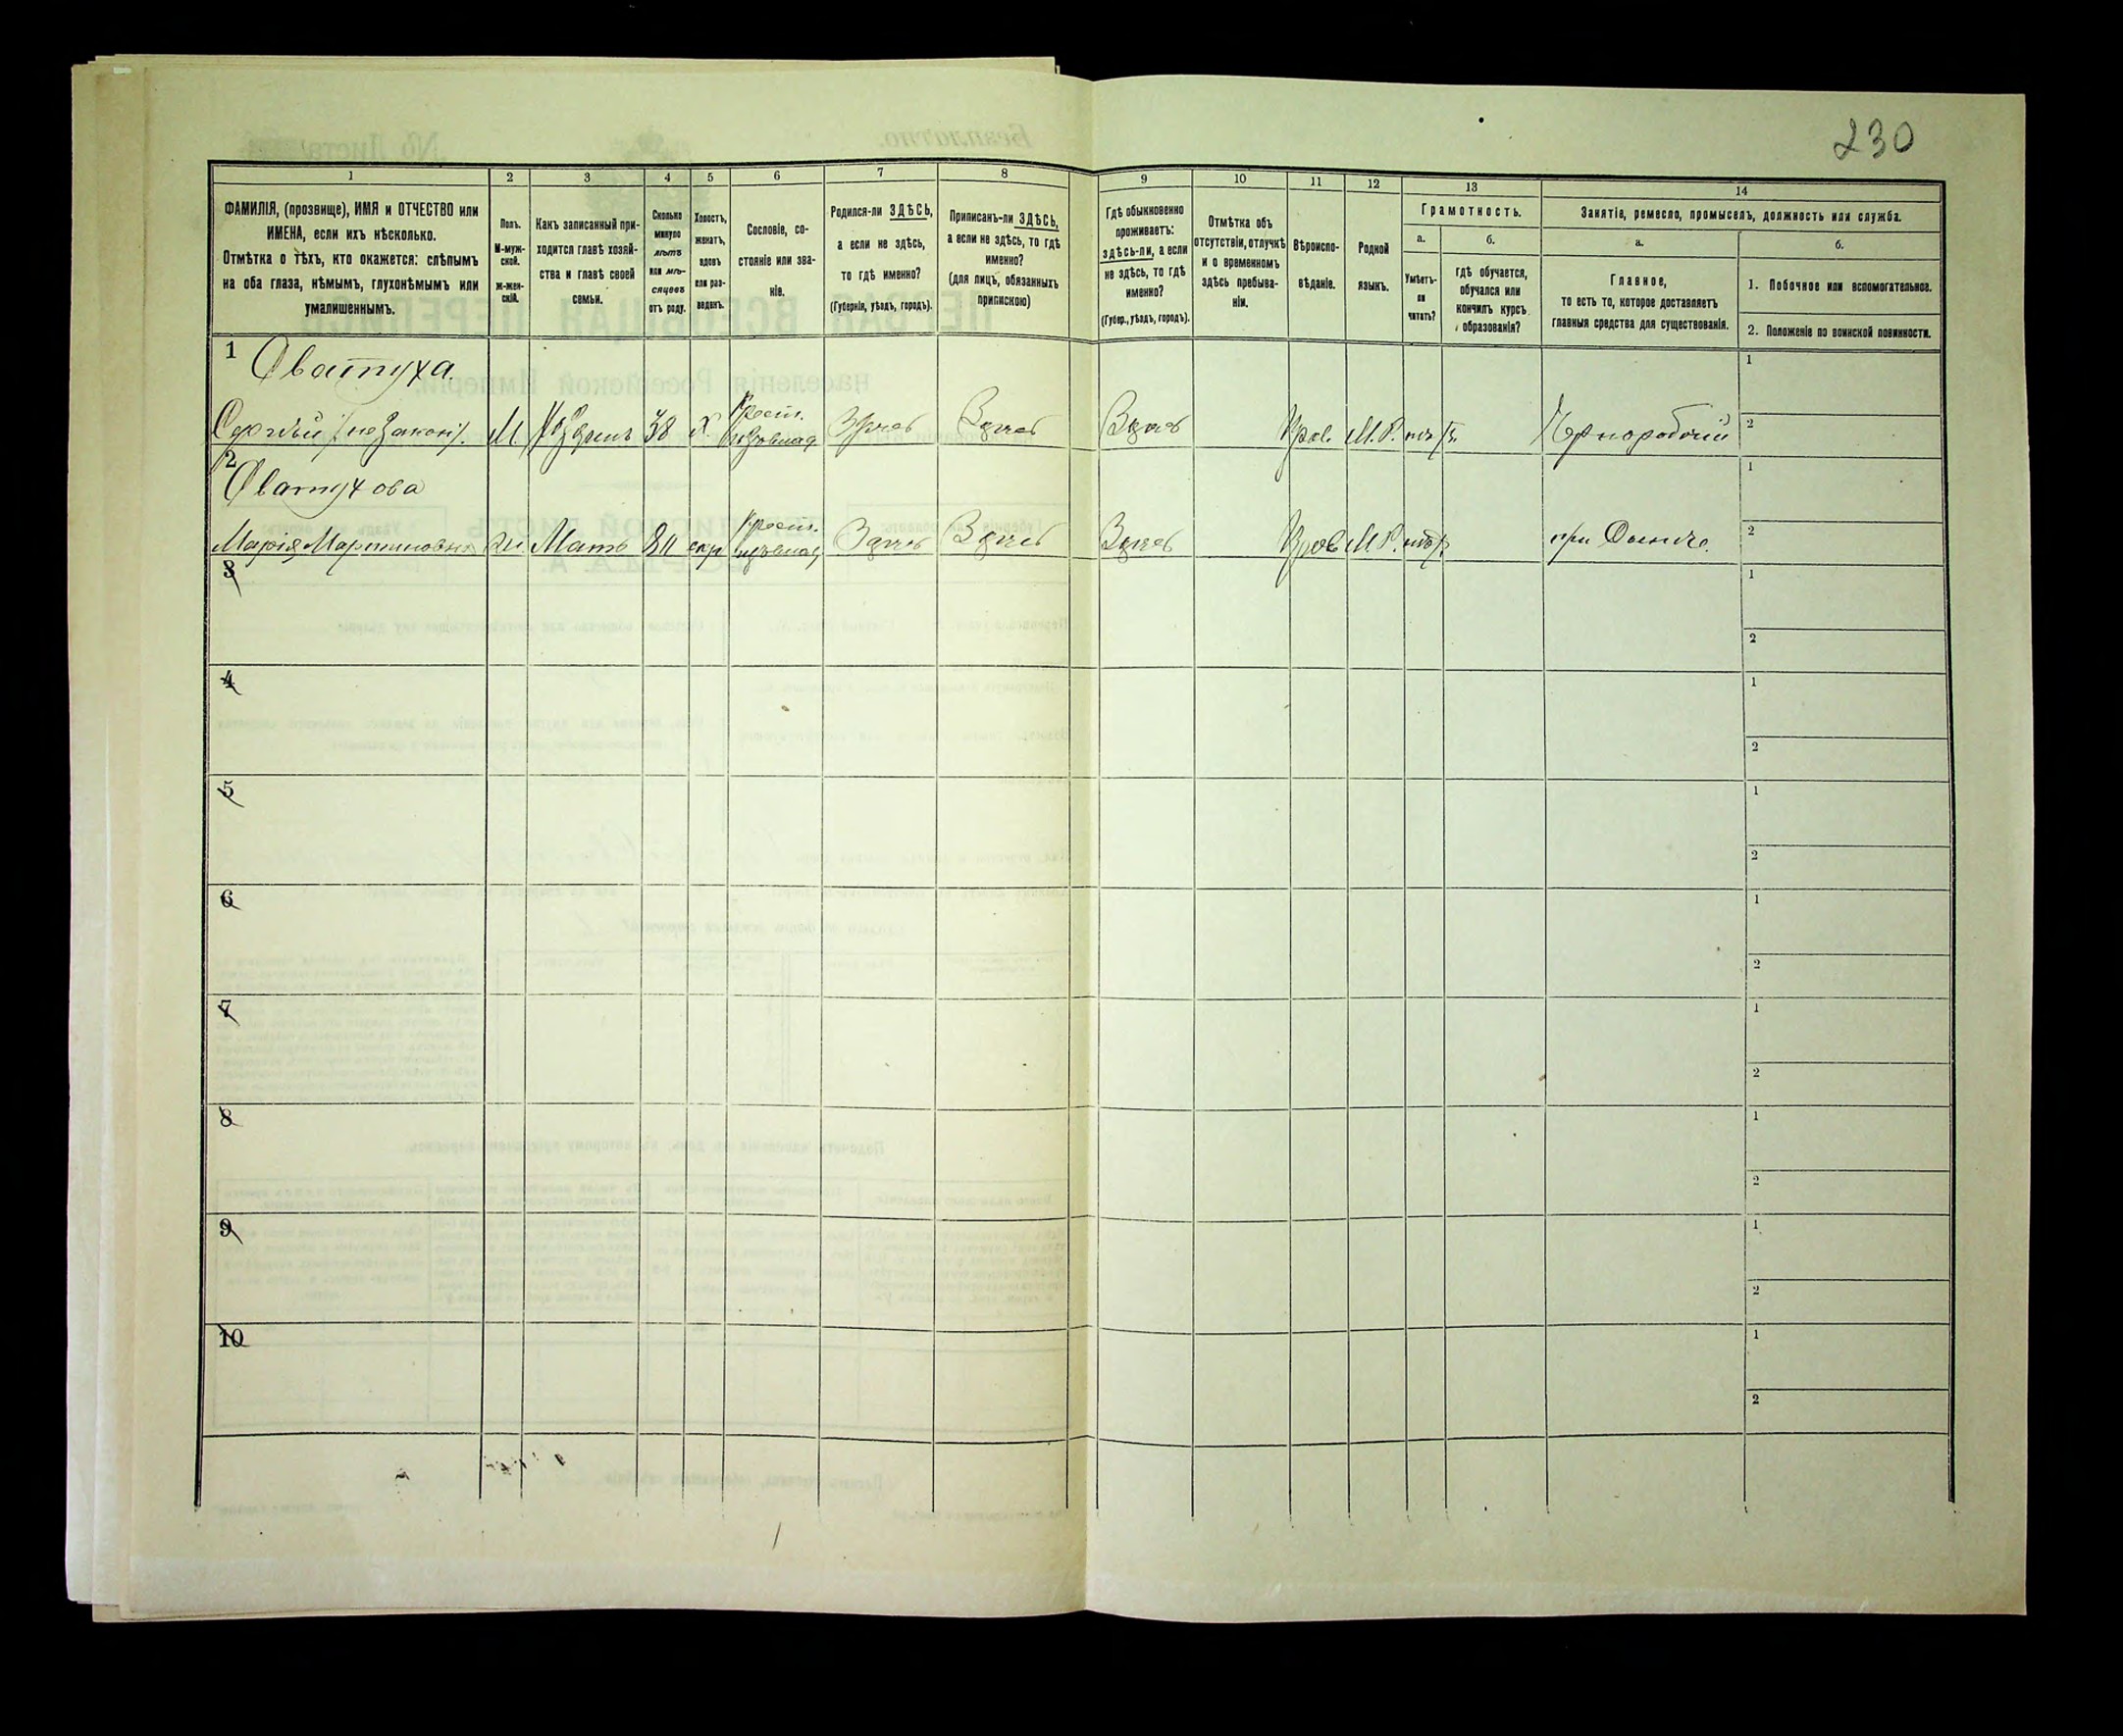 230
1
2
3
4
5
6
7
8
9
10
11
12
13
14
ФАМИЛІЯ, (прозвище), ИМЯ и ОТЧЕСТВО или
ИМЕНА, если ихъ нѣсколько.
Отмѣтка о тѣхъ, кто окажется: слѣпымъ
на оба глаза, нѣмымъ, глухонѣмымъ или
умалишеннымъ.
Полъ.
М-муж-
ской.
ж-жен-
скій.
Какъ записанный при-
ходится главѣ хозяй-
ства и главѣ своей
семьи.
Сколько
минуло
лѣтъ
или мѣ-
сяцевъ
отъ роду.
Холостъ,
женатъ,
вдовъ
или раз-
веденъ.
Сословіе, со-
стояніе или зва-
ніе.
Родился-ли ЗДѢСЬ,
а если не здѣсь,
то гдѣ именно?
(Губернія, уѣздъ, городъ).
Приписанъ-ли ЗДѢСЬ,
а если не здѣсь, то гдѣ
именно?
(для лицъ, обязанныхъ
припискою)
Гдѣ обыкновенно
проживаетъ:
здѣсь-ли, а если
не здѣсь, то гдѣ
именно?
(Губер., уѣздъ, городъ).
Отмѣтка объ
отсутствіи, отлучкѣ
и о временномъ
здѣсь пребыва-
ніи.
Вѣроиспо-
вѣданіе.
Родной
языкъ.
Грамотность.
а.
Умѣетъ-
ли
читать?
б.
гдѣ обучается,
обучался или
кончилъ курсъ
образованія?
Занятіе, ремесло, промыселъ, должность или служба.
а.
Главное,
то есть то, которое доставляетъ
главныя средства для существованія.
б.
1. Побочное или вспомогательное.
2. Положеніе по воинской повинности.
1
Сватуха.
Сергѣй (незакон). М 38 Х. Крест. Здѣсь Здѣсь Здѣсь Прав. М.Р. нѣтъ Чернорабочій
1
2
2
Сватухова
Марія Мартиновна Мать Крест. Здѣсь Здѣсь Здѣсь Прав М.Р. нѣтъ при Сынѣ.
1
2
3
1
2
4
1
2
5
1
2
6
1
2
7
1
2
8
1
2
9
1
2
10
1
2